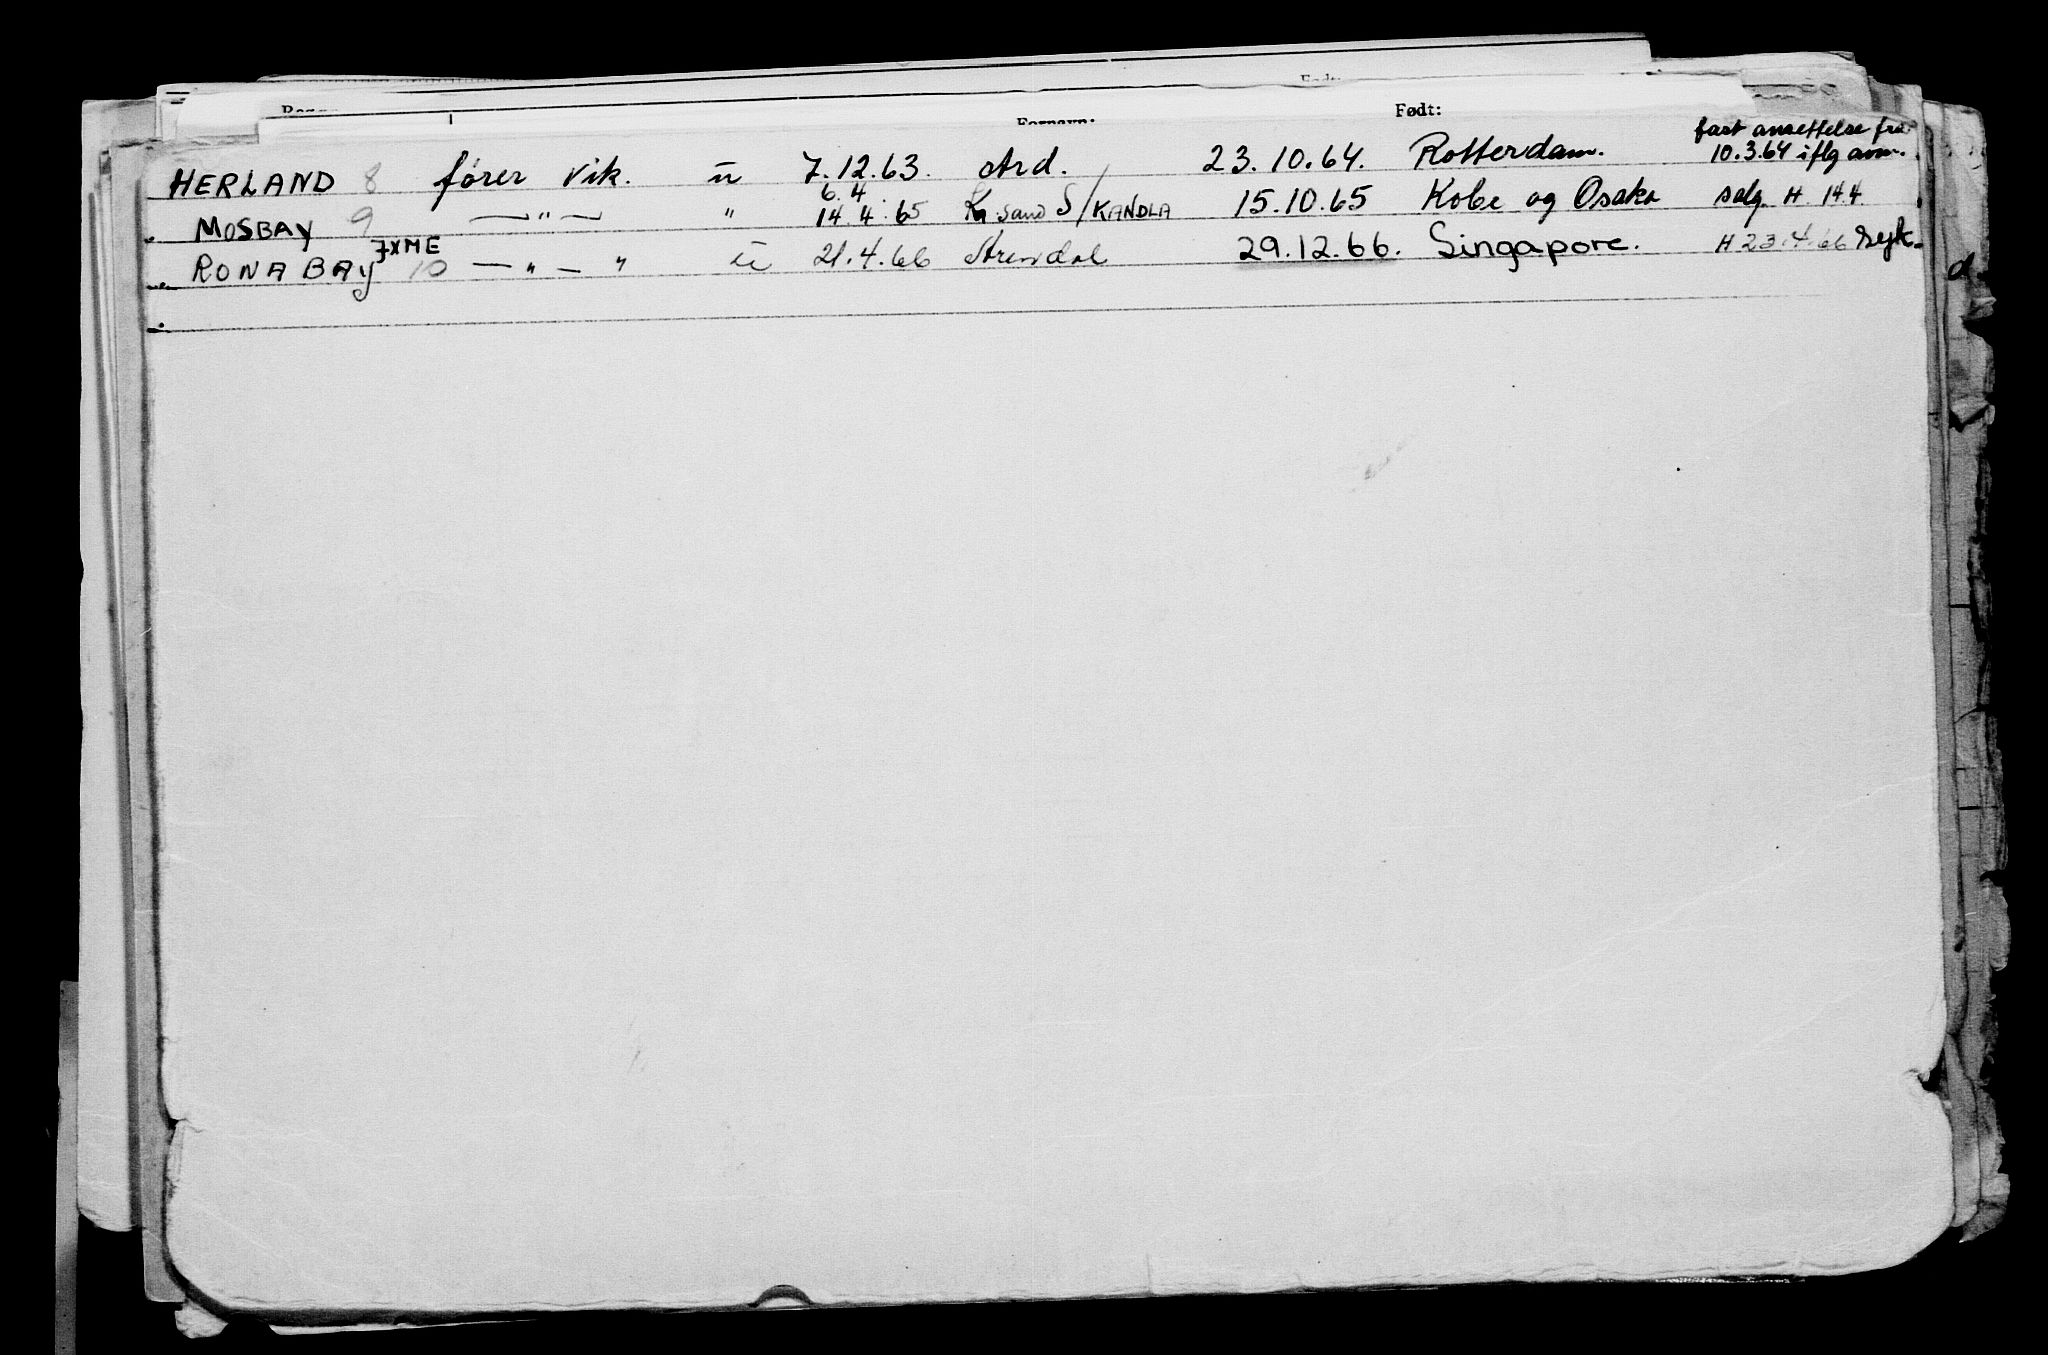 Født:
fast ansettelse fra
HERLAND 8 fører vik. u 7.12.63. Ard. 23.10.64. Rotterdam. 10.3.64 iflg anm.
6.4
MOSBAY 9 —"— " 14.4.65 Kr.sand S/KANDLA 15.10.65 Kobe og Osaka salg H 14.4
JXME
RONA BAY 10 —"— " u 21.4.66 Arendal 29.12.66. Singapore. H 23.4.66 syk.